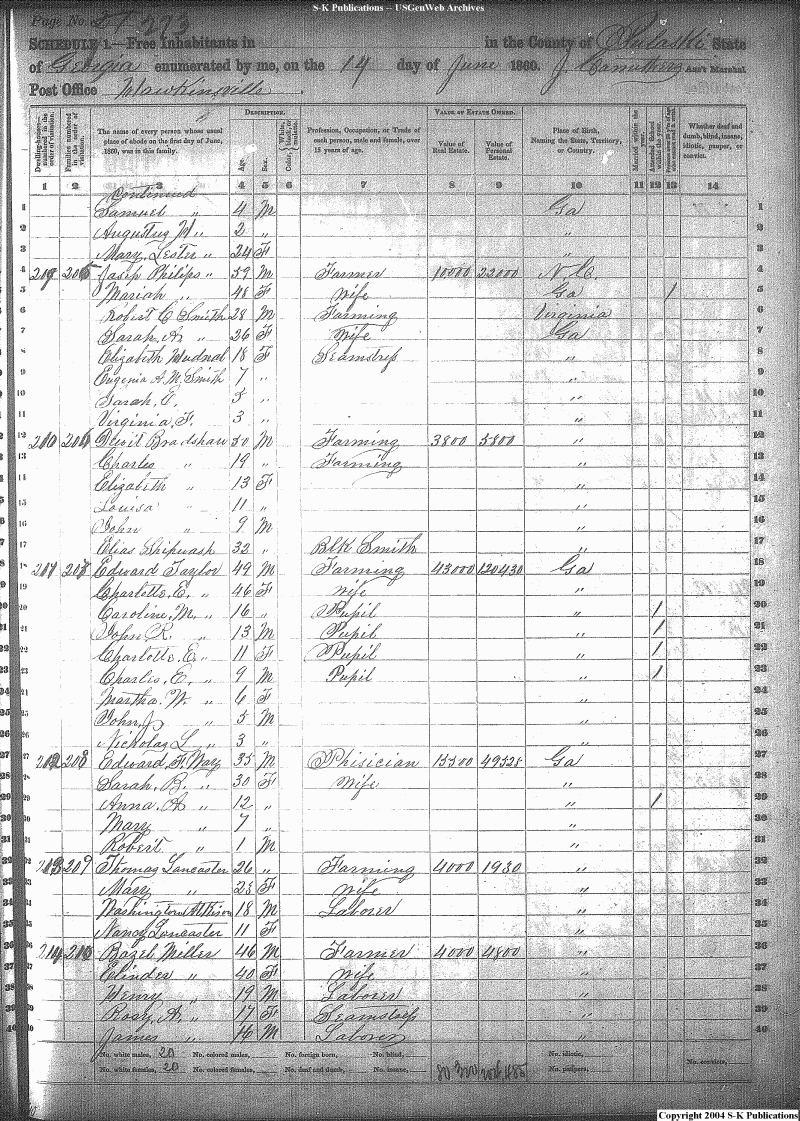 S-K Publications -- USGenWeb Archives
Page No. 27 223
SCHEDULE 1.—Free Inhabitants in in the County of Pulaski State
of Georgia enumerated by me, on the 14 day of June 1860. J. Carruthers Ass't Marshal
Post Office Hawkinsville
Dwelling-houses—numbered in the order of visitation.
Families numbered in the order of visitation.
The name of every person whose usual place of abode on the first day of June, 1860, was in this family.
DESCRIPTION.
Age.
Sex.
Color, White, black, or mulatto.
Profession, Occupation, or Trade of each person, male and female, over 15 years of age.
VALUE OF ESTATE OWNED.
Value of Real Estate.
Value of Personal Estate.
Place of Birth, Naming the State, Territory, or Country.
Married within the year.
Attended School within the year.
Whether deaf and dumb, blind, insane, idiotic, pauper, or convict.
1 2 3 4 5 6 7 8 9 10 11 12 13 14
Continued
1 Samuel " 4 M Ga 1
2 Augustus M " 2 " " 2
3 Mary Lester " 24 F " 3
4 209 205 Josep Philips " 59 M Farmer 10000 22000 N. C. 4
5 Mariah " 48 F Wife Ga / 5
6 Robert C Smith 28 M Farming Virginia 6
7 Sarah, A. " 26 F Wife Ga 7
8 Elizabeth 18 F Seamstress " 8
9 Eugenia A. M. Smith 7 " " 9
10 Sarah, E. 5 " " 10
11 Virginia, F. 3 " " 11
12 210 206 Bradshaw 50 M Farming 3800 5800 " 12
13 Charles " 19 " Farming " 13
14 Elizabeth " 13 F " 14
15 Louisa " 11 " " 15
16 John " 9 M " 16
17 Elias Shipwash 32 " Blk Smith " 17
18 211 207 Edward Taylor 49 M Farming 43000 120430 Ga 18
19 Charlotte, E. " 46 F Wife " 19
20 Caroline, M. " 16 " Pupil " / 20
21 John R. " 13 M Pupil " / 21
22 Charlotte, E. " 11 F Pupil " / 22
23 Charles, E. " 9 M Pupil " / 23
24 Martha. W. " 6 F " 24
25 John, J. " 5 M " 25
26 Nicholas L " 3 " " 26
27 212 208 Edward F. Way 35 M Phisician 15500 49525 Ga 27
28 Sarah. B. " 30 F Wife " 28
29 Anna. A " 12 " " / 29
30 Mary " 7 " " 30
31 Robert " 1 M " 31
32 213 209 Thomas Lancaster 26 " Farming 4000 1930 " 32
33 Mary " 23 F Wife " 33
34 Washington Atkison 18 M Laborer " 34
35 Nancy Lancaster 11 F " 35
36 214 210 Bazel Miller 46 M Farmer 4000 4800 " 36
37 Elinder " 40 F Wife " 37
38 Henry " 19 M Laborer " 38
39 Rosy, A. " 17 F Seamstress " 39
40 James " 16 M Laborer " 40
No. white males, 20 No. colored males, No. foreign born, No. blind, No. idiotic,
No. white females, 20 No. colored females, No. deaf and dumb, No. insane, 80 300 No. paupers, No. convicts,
Copyright 2004 S-K Publications